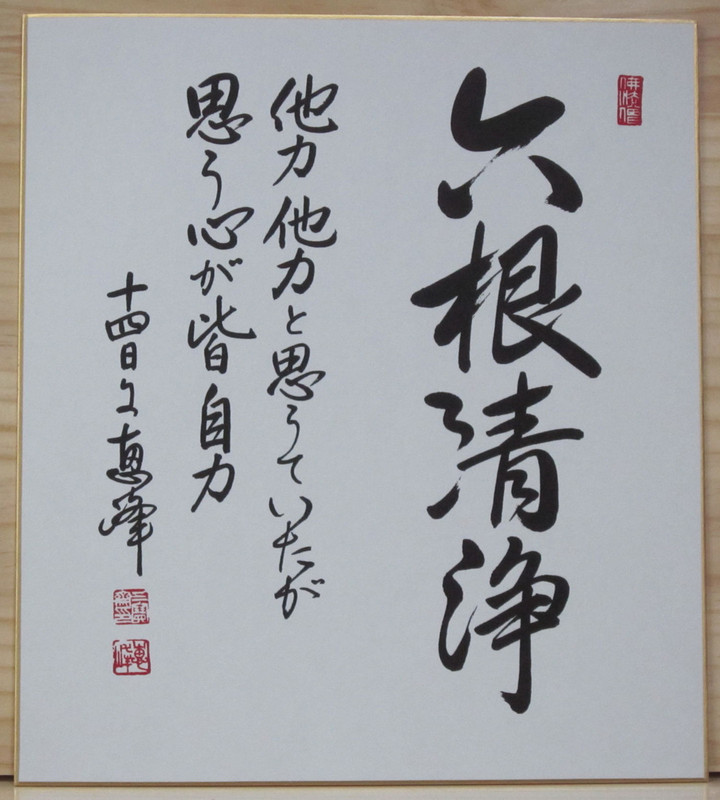 六根清浄
他力他力と思うていたが
思う心が皆自力
十四日又恵峰